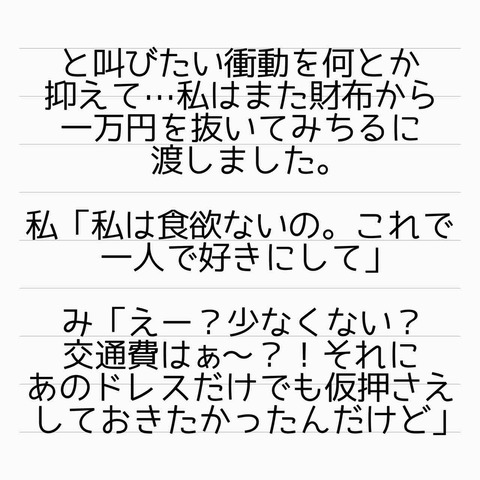 と叫びたい衝動を何とか
抑えて…私はまた財布から
一万円を抜いてみちるに
渡しました。
私「私は食欲ないの。これで
一人で好きにして」
み「えー？少なくない？
交通費はぁ〜？！それに
あのドレスだけでも仮押さえ
しておきたかったんだけど」